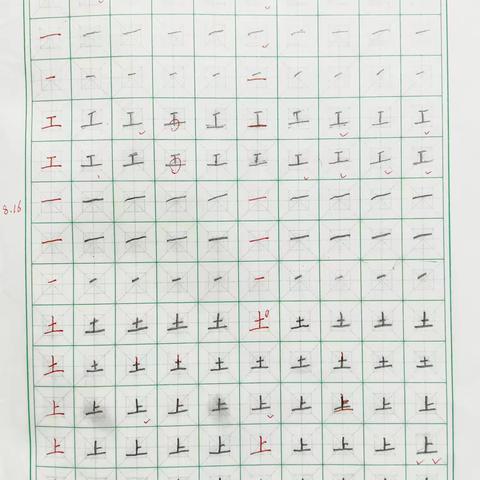 一 一 一 一 一 一 一 一 一 一
一 一 一 一 一 一 一 一 一 一
工 工 工 工 工 工 工 工 工 工
工 工 工 工 工 工 工 工 工 工
8.16
一 一 一 一 一 一 一 一 一 一
一 一 一 一 一 一 一 一 一 一
一 一 一 一 一 一 一 一 一 一
土 土 土 土 土 土 土 土 土 土
土 土 土 土 土 土 土 土 土 土
上 上 上 上 上 上 上 上 上 上
上 上 上 上 上 上 上 上 上 上